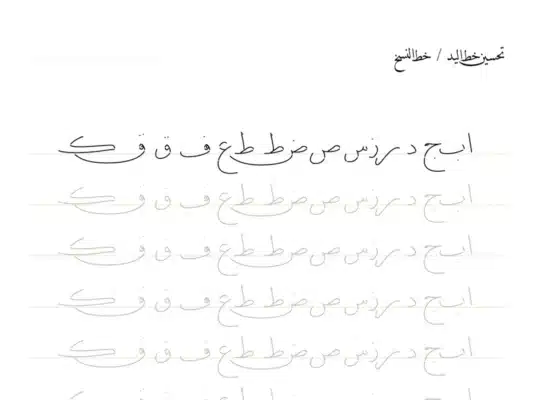 تحسين خط اليد / خط النسخ
ا ب ج د ر ز س ص ض ط ط ع ف ق ق ك
ا ب ج د ر ز س ص ض ط ط ع ف ق ق ك
ا ب ج د ر ز س ص ض ط ط ع ف ق ق ك
ا ب ج د ر ز س ص ض ط ط ع ف ق ق ك
ا ب ج د ر ز س ص ض ط ط ع ف ق ق ك